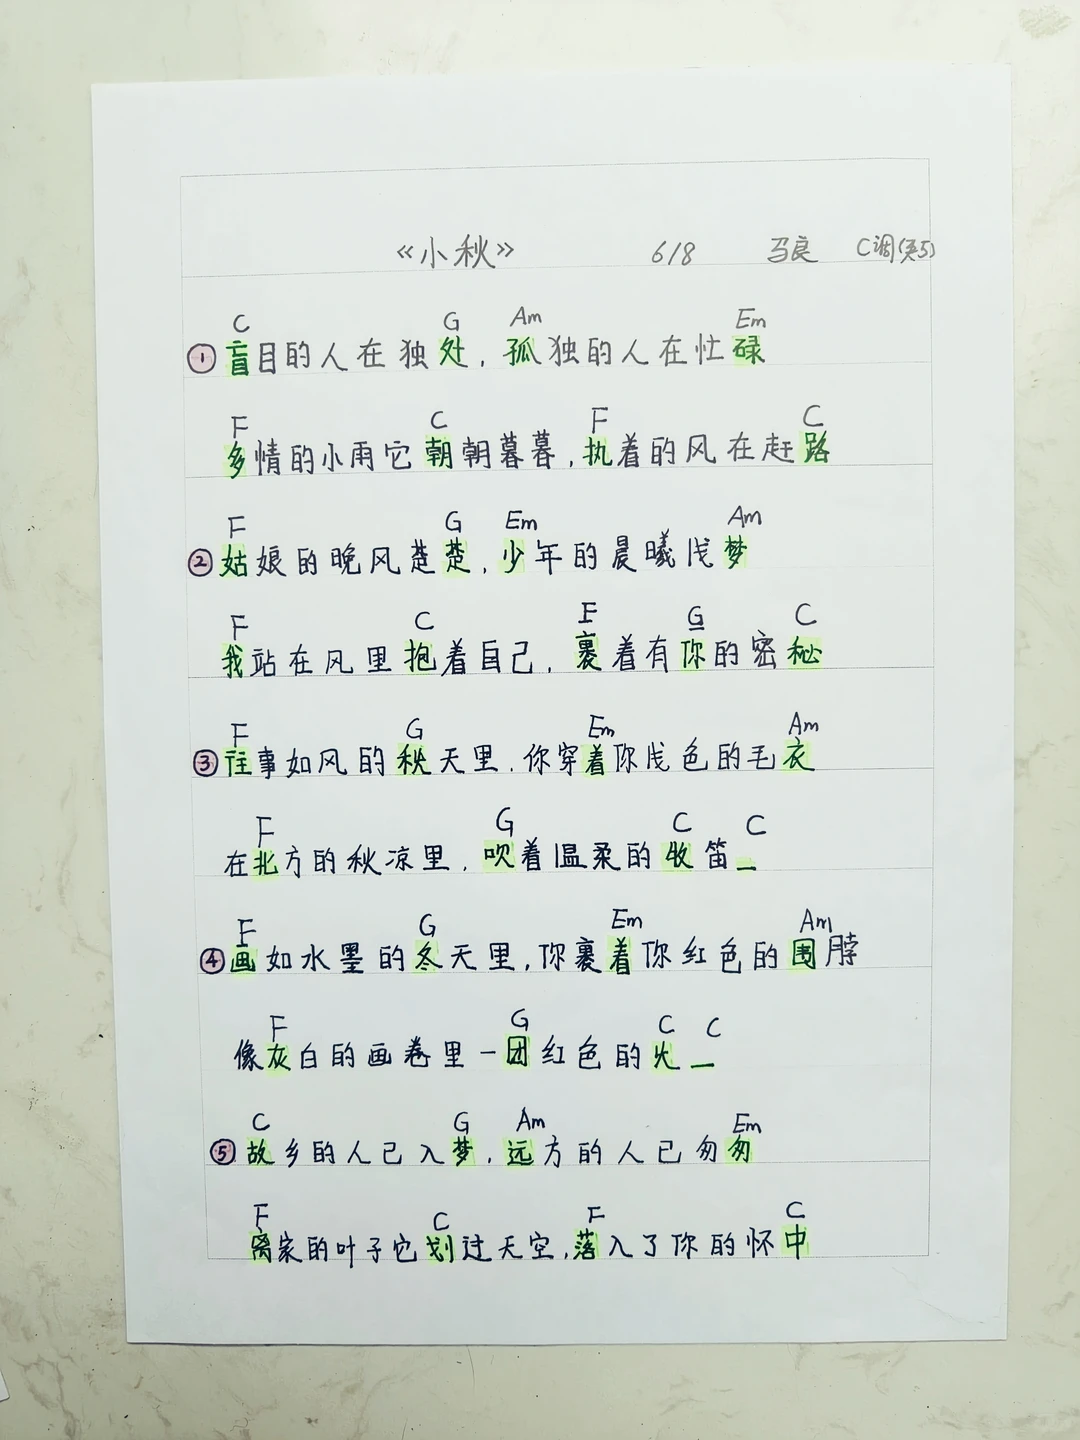 《小秋》 6/8 马良 C调(夹5)
C G Am Em
①盲目的人在独处，孤独的人在忙碌
F C F C
多情的小雨它朝朝暮暮，执着的风在赶路
F G Em Am
②姑娘的晚风楚楚，少年的晨曦浅梦
F C F G C
我站在风里抱着自己，裹着有你的密秘
F G Em Am
③往事如风的秋天里，你穿着你浅色的毛衣
F G C C
在北方的秋凉里，吹着温柔的牧笛_
F G Em Am
④画如水墨的冬天里，你裹着你红色的围脖
F G C C
像灰白的画卷里一团红色的火_
C G Am Em
⑤故乡的人已入梦，远方的人已匆匆
F C F C
离家的叶子它划过天空，落入了你的怀中